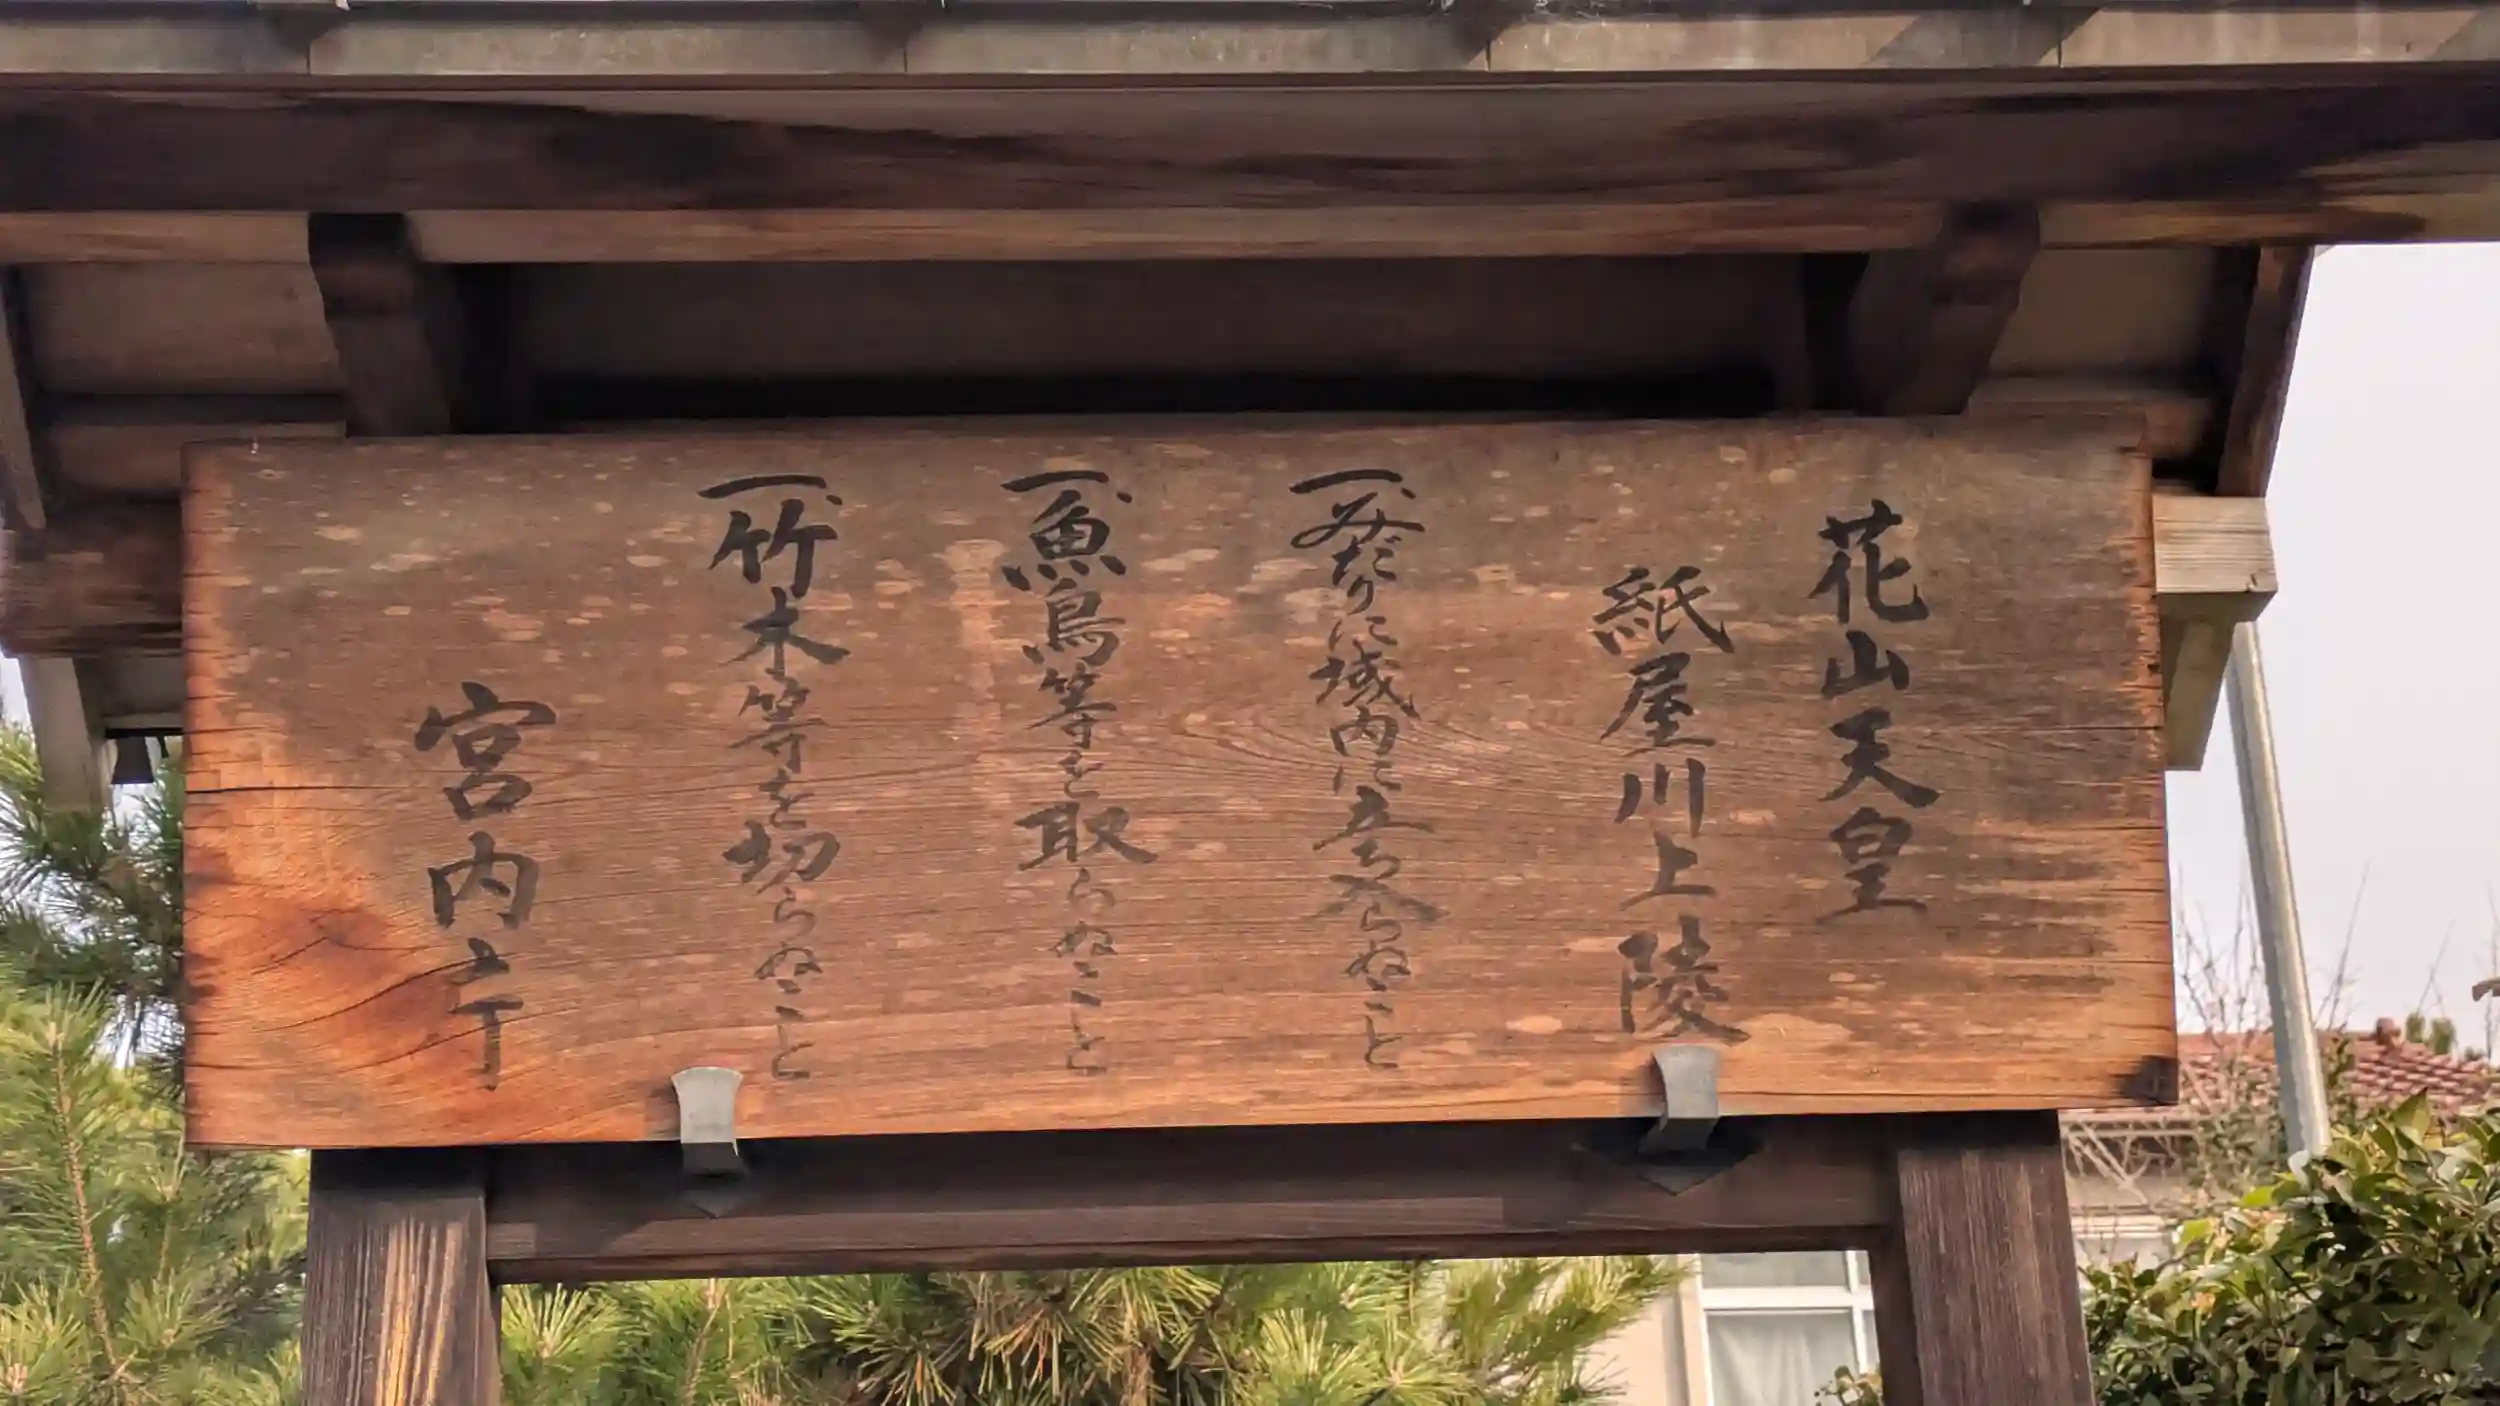 花山天皇
紙屋川上陵
一、みだりに域内に立ち入らぬこと
一、魚鳥等を取らぬこと
一、竹木等を切らぬこと
宮内庁